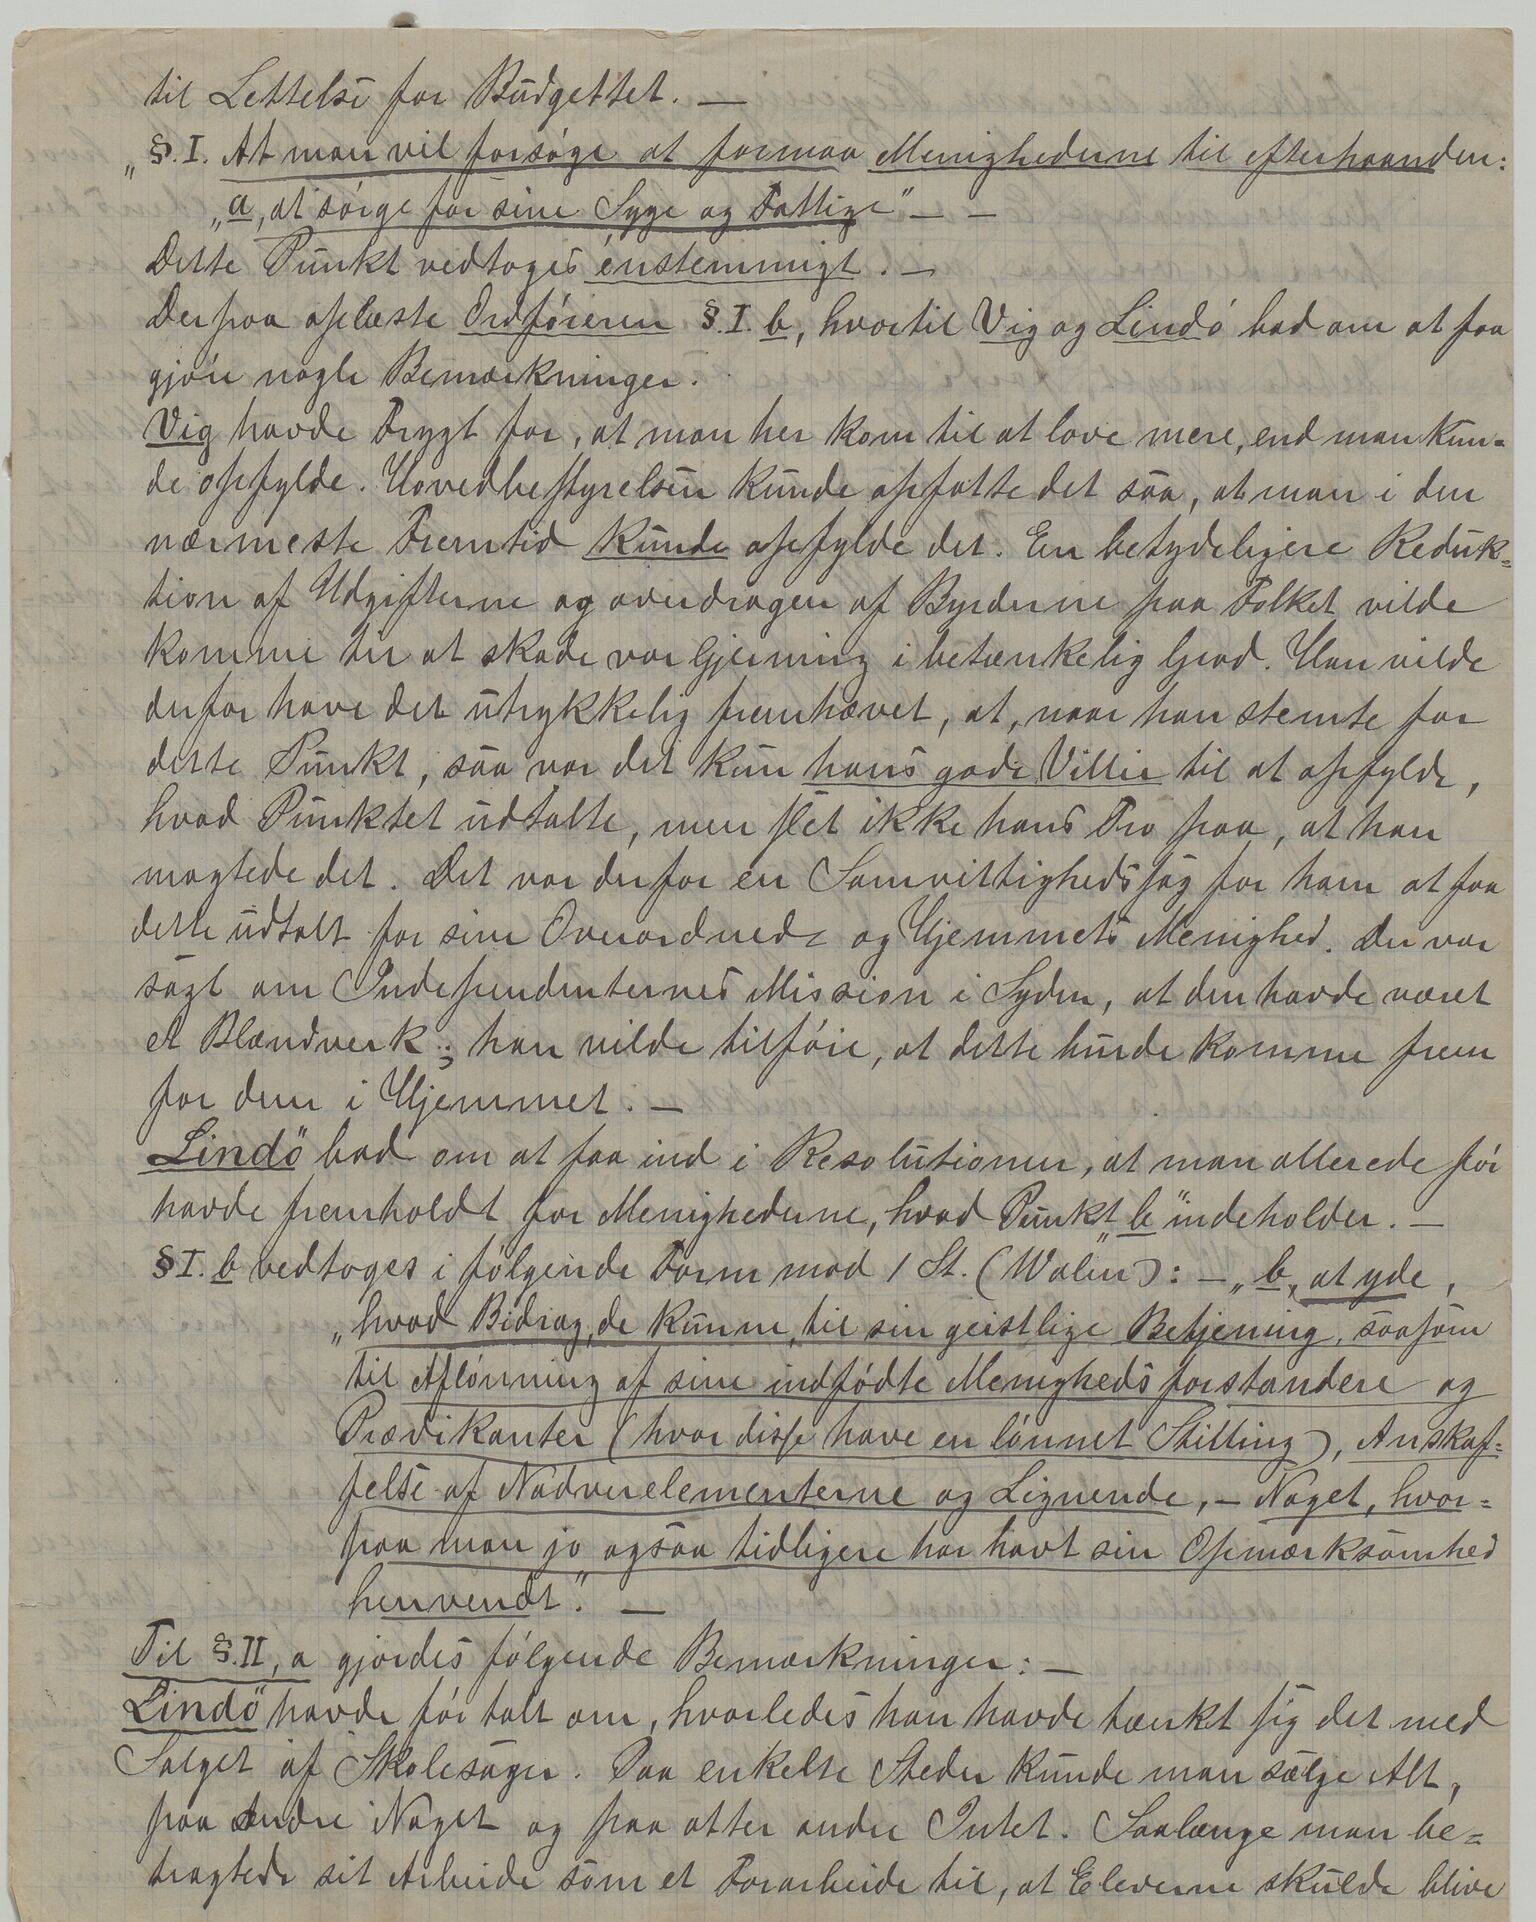 til Lettelse for Budgettet. —
„§.I. At man vil forsøge at formaa Menighederne til efterhaanden:
„a, at sørge for sine Syge og Fattige” — —
Dette Punkt vedtoges énstemmigt. —
Derpaa oplæste Ordføreren §.I. b, hvortil Vig og Lindö bad om at faa
gjøre nogle Bemærkninger.
Vig havde Frygt for, at man her kom til at love mere, end man kun-
de opfylde. Hovedbestyrelsen kunde opfatte det saa, at man i den
nærmeste Fremtid kunde opfylde det. En betydeligere Reduk-
tion af Udgifterne og overdragen af Byrderne paa Folket vilde
komme til at skade vor Gjerning i betænkelig Grad. Han vilde
derfor have det utrykkelig fremhævet, at, naar han stemte for
dette Punkt, saa var det kun hans gode Villie til at opfylde,
hvad Punktet udtalte, men slet ikke hans Tro paa, at han
magtede det. Det var derfor en Samvittighedssag for ham at faa
dette udtalt for sine Overordnede og Hjemmets Menighed. Der var
sagt om Independenternes Mission i Syden, at den havde været
et Blændverk; han vilde tilføie, at dette burde komme frem
for dem i Hjemmet. —
Lindö bad om at faa ind i Resolutionen, at man allerede før
havde fremholdt for Menighederne, hvad Punkt „b” indeholder. —
§I. b vedtoges i følgende Form mod 1 St. (Walen): — „b, at yde,
„hvad Bidrag, de kunne, til sin geistlige Betjening, saasom
til Aflønning af sine indfødte Menighedsforstandere og
Prædikanter (hvor disse have en lønnet Stilling), Anskaf-
felse af Nadverelementerne og Lignende, — Noget, hvor-
paa man jo ogsaa tidligere har havt sin Opmærksomhed
henvendt.” —
Til §.II, a gjordes følgende Bemærkninger: —
Lindö havde før talt om, hvorledes han havde tænkt sig det med
Salget af Skolesager. Paa enkelte Steder kunde man sælge Alt,
paa andre Noget og paa atter andre Intet. Saalænge man be-
tragtede sit Arbeide som et Forarbeide til, at Eleverne skulde blive